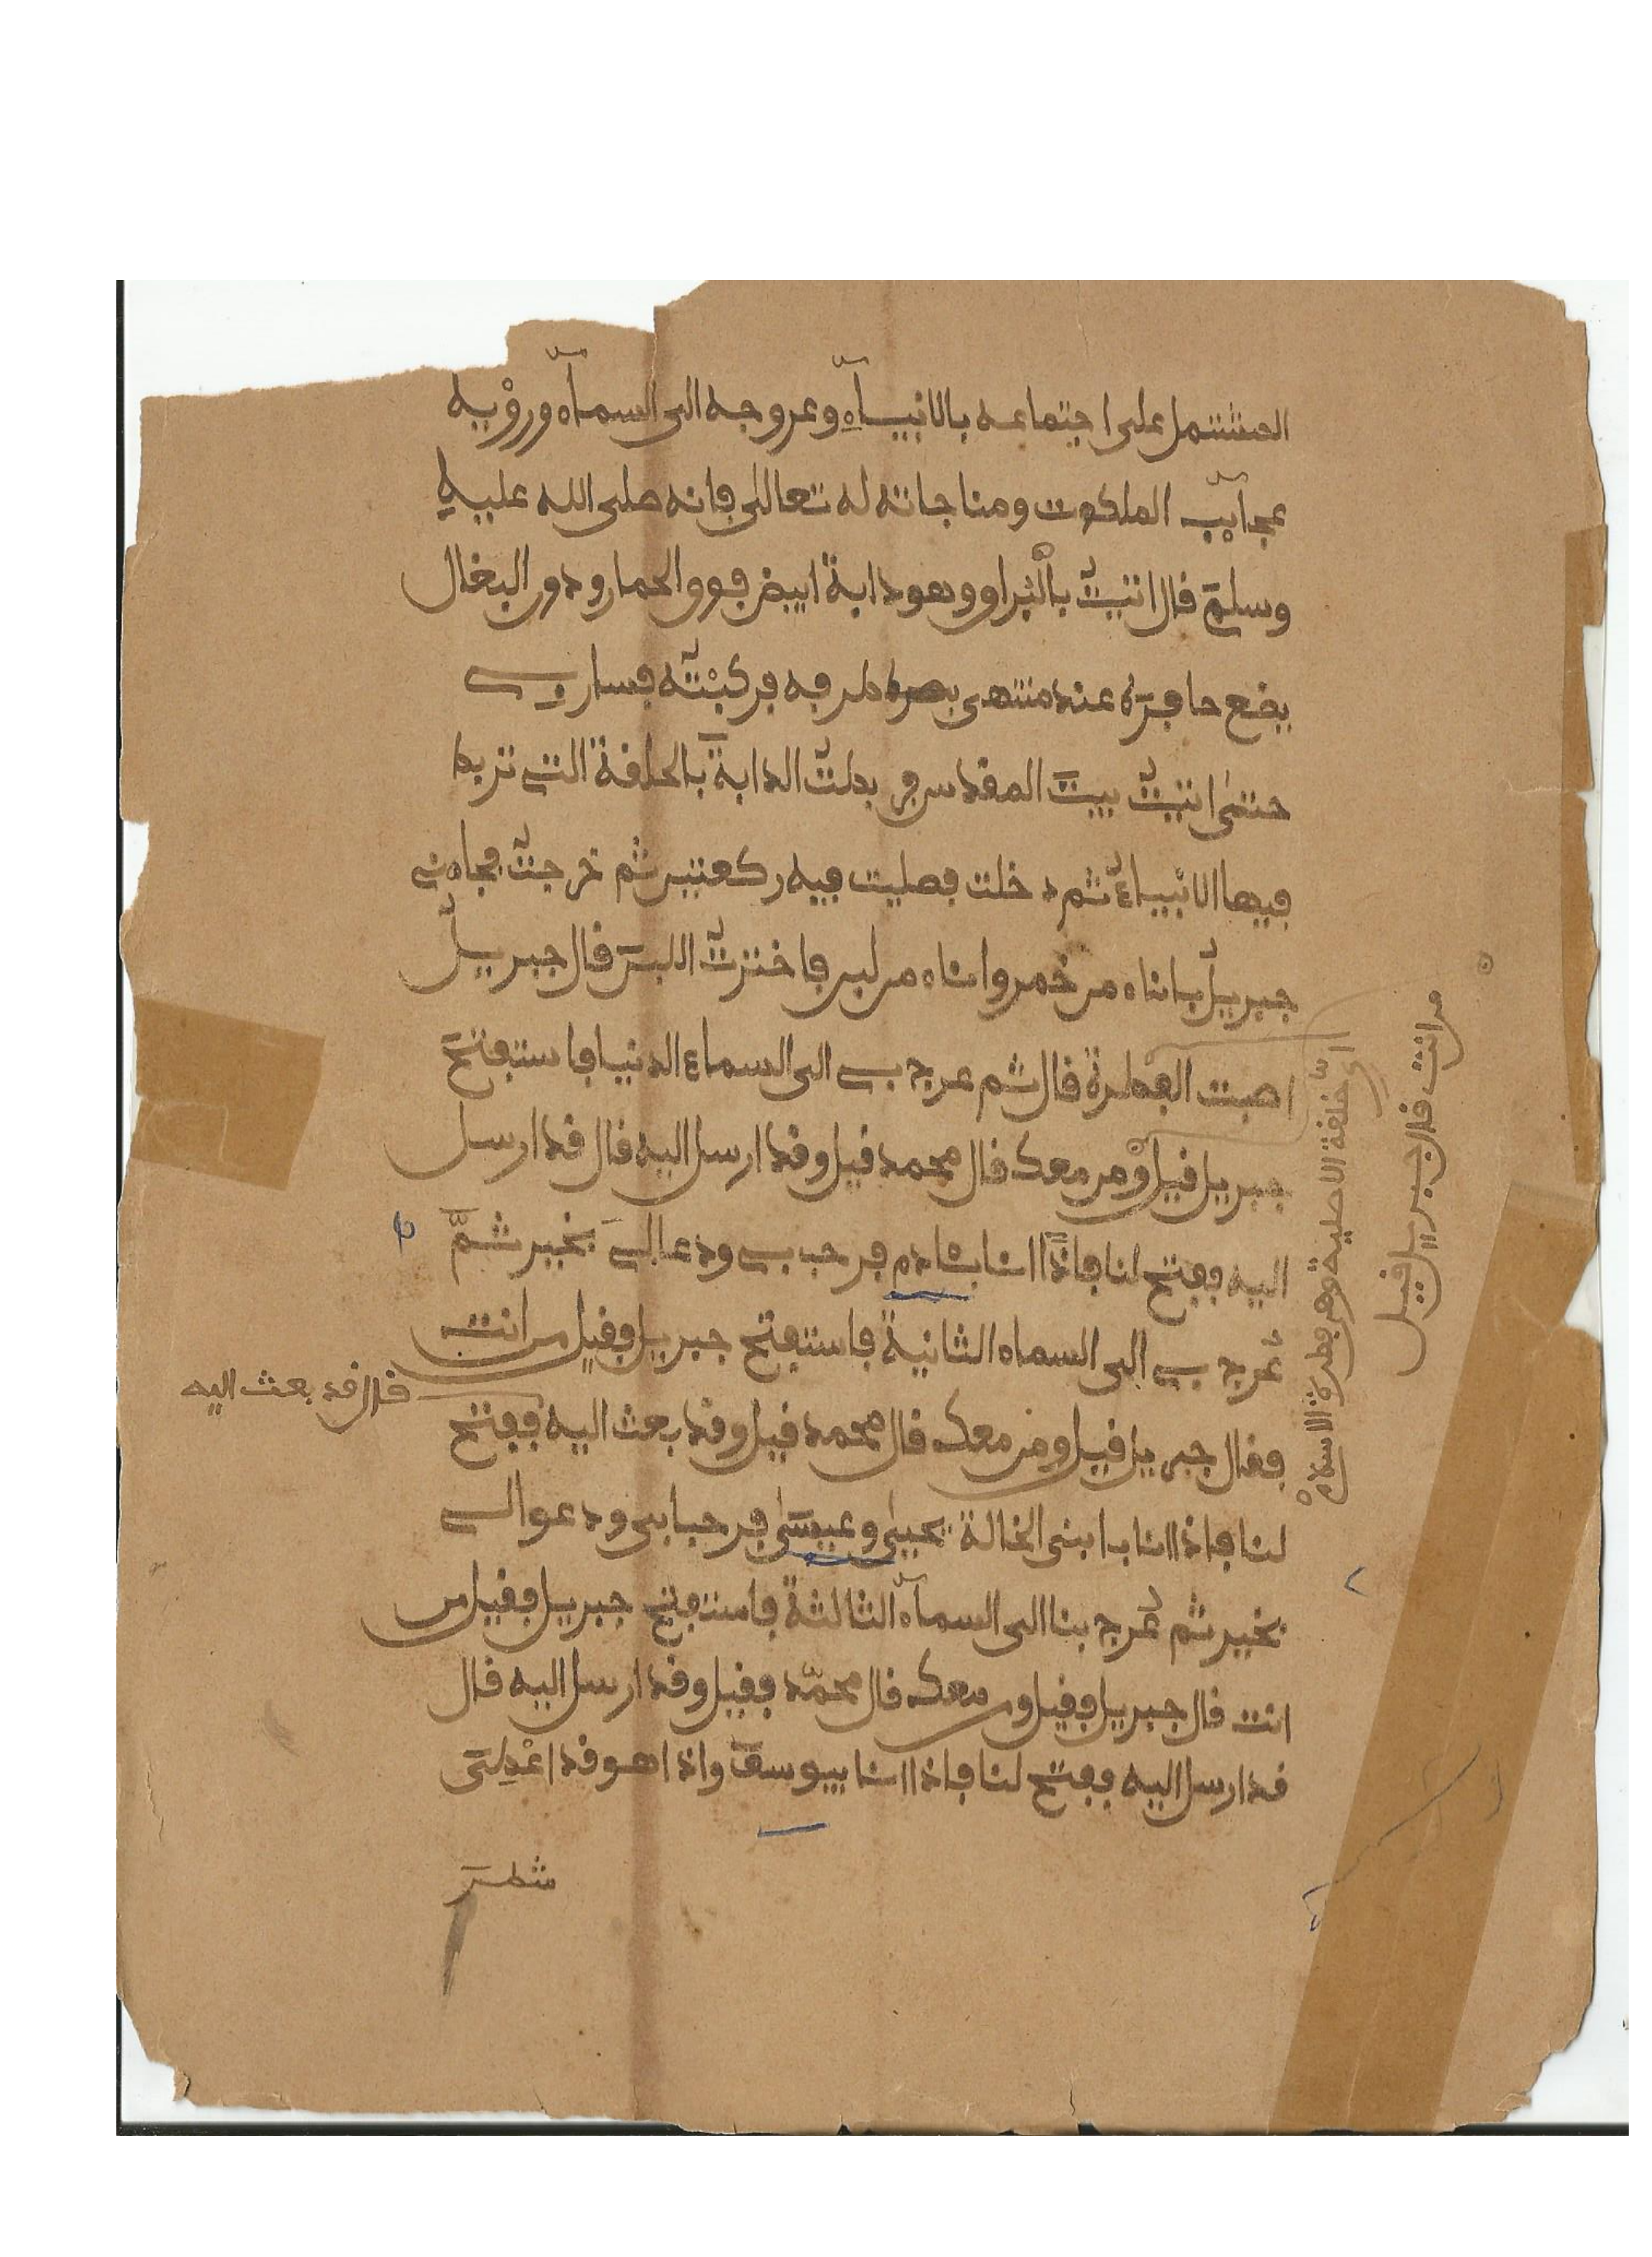 المشتمل على اجتماعه بالانبيآءِ وعروجه الى السمآء ورؤيه
عجآيب الملكوت ومناجاته له تعالى فانه صلى الله عليه
وسلم قال اتيت بالبراق وهو دابة ابيض فوق الحمار ودون البغال
يضع حافره عند منتهى بصره طرفه فركبته فسار بي
حتى اتيت بيت المقدس فربطت الدابة بالحلقة التي تربط
فيها الانبياء ثم دخلت فصليت فيه ركعتين ثم خرجت فجاءني
جبريل باناء من خمر واناء من لبن فاخترت اللبن قال جبريل
اصبت الفطرة قال ثم عرج بي الى السماء الدنيا فاستفتح
جبريل قيل ومن معك قال محمد قيل وقد ارسل اليه قال قد ارسل
اليه ففتح لنا فاذا انا بئادم فرحب بي ودعا لي بخير ثمَّ
عرج بي الى السماء الثانية فاستفتح جبريل فقيل من انت
فقال جبريل قيل ومن معك قال محمد قيل وقد بعث اليه ففتح
لنا فاذا انا بابني الخالة يحيى وعيسى فرحبا بي ودعوا لي
بخير ثم عرج بنا الى السمآء الثالثة فاستفتح جبريل فقيل من
انت قال جبريل فقيل ومن معك قال محمّد فقيل وقد ارسل اليه قال
قد ارسل اليه ففتح لنا فاذا انا بيوسف واذا هو قد اعْطِىَ
شطر
من انت قال جبريل قيل
اي الخلقة الاصلية وهي فطرة الاسلام
قال قد بعث اليه